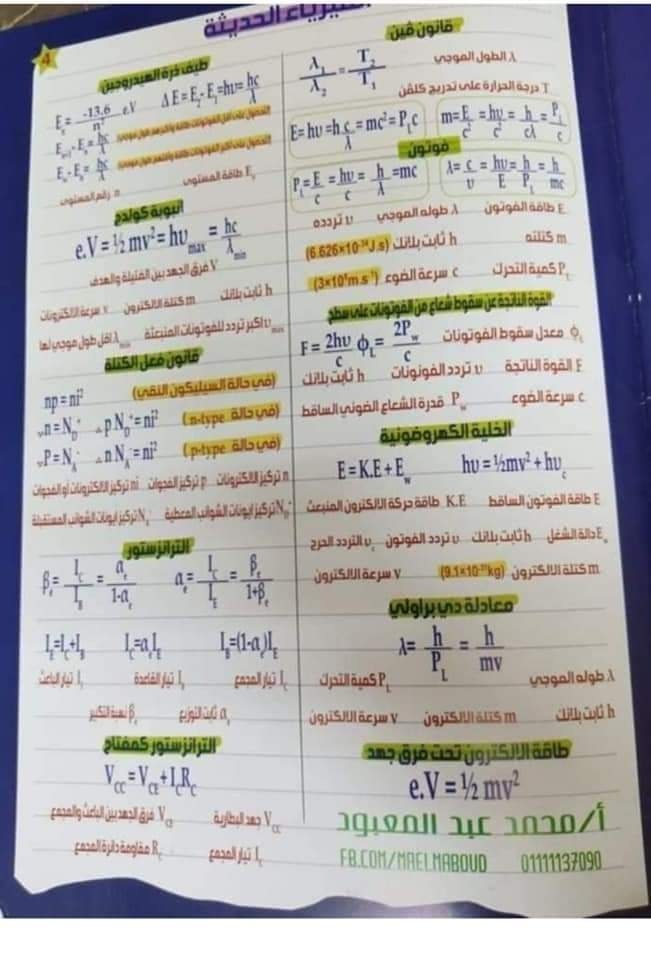 الفيزياء الحديثة
4
قانون ڤين
λ₁/λ₂ = T₂/T₁
λ الطول الموجي
T درجة الحرارة على تدريج كلفن
E=hυ=h c/λ=mc²=P_L c
m=E/c²=hυ/c²=h/cλ=P_L/c
فوتون
P_L=E/c=hυ/c=h/λ=mc
λ=c/υ=hυ/E=h/P_L=h/mc
E طاقة الفوتون λ طوله الموجي υ تردده
m كتلته h ثابت بلانك (6.626×10⁻³⁴J.s)
P_L كمية التحرك c سرعة الضوء (3×10⁸m.s⁻¹)
القوة الناتجة عن سقوط شعاع من الفوتونات على سطح
F = 2hυ/c ϕ_L = 2P_w/c
ϕ_L معدل سقوط الفوتونات
F القوة الناتجة υ تردد الفوتونات h ثابت بلانك
c سرعة الضوء P_w قدرة الشعاع الضوئي الساقط
الخلية الكهروضوئية
E=K.E+E_w hυ=½mv²+hυ_c
E طاقة الفوتون الساقط K.E طاقة حركة الالكترون المنبعث
E_w دالة الشغل h ثابت بلانك υ تردد الفوتون υ_c التردد الحرج
m كتلة الالكترون (9.1×10⁻³¹kg) v سرعة الالكترون
معادلة دي براولي
λ= h/P_L = h/mv
λ طوله الموجي P_L كمية التحرك
h ثابت بلانك m كتلة الالكترون v سرعة الالكترون
طاقة الالكترون تحت فرق جهد
e.V=½ mv²
أ/محمد عبد المعبود
FB.COM/MAELMABOUD 01111137090
طيف ذرة الهيدروجين
E_n= -13.6/n² e.V ΔE=E₂-E₁=hυ=hc/λ
E_n+1-E_n=hc/λ
E_∞-E_n=hc/λ
E_n طاقة المستوى n رقم المستوى
انبوبة كولدج
e.V=½ mv²=hυ_max = hc/λ_min
V فرق الجهد بين الفتيلة والهدف
h ثابت بلانك m كتلة الالكترون v سرعة الالكترونات
υ_max اكبر تردد للفوتونات المنبعثة λ_min اقل طول موجي لها
قانون فعل الكتلة
np=ni² (في حالة السيليكون النقي)
∵n=N_D⁺ ∴pN_D⁺=ni² (في حالة n-type)
∵P=N_A⁻ ∴nN_A⁻=ni² (في حالة p-type)
n تركيز الالكترونات p تركيز الفجوات ni تركيز الالكترونات أو الفجوات
N_D⁺ تركيز ايونات الشوائب المعطية N_A⁻ تركيز ايونات الشوائب المستقبلة
الترانزستور
β_e = I_C/I_B = α_e/1-α_e α_e = I_C/I_E = β_e/1+β_e
I_E=I_C+I_B I_C=α_e I_E I_B=(1-α_e)I_E
I_C تيار المجمع I_B تيار القاعدة I_E تيار الباعث
α_e ثابت التوزيع β_e نسبة التكبير
الترانزستور كمفتاح
V_CC=V_CE+I_C R_C
V_CC جهد البطارية V_CE فرق الجهد بين الباعث والمجمع
I_C تيار المجمع R_C مقاومة دائرة المجمع